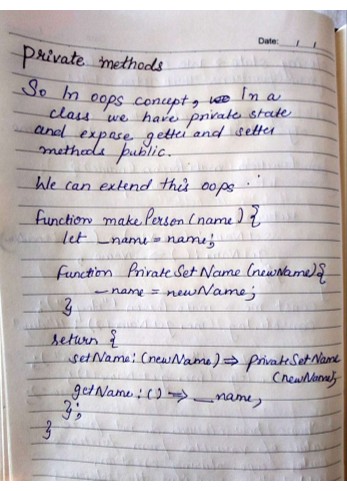 Date: / /
private methods
So In oops concept, In a
class we have private state
and expose getter and setter
methods public.
We can extend this oops
function makePerson (name) {
let _name = name;
Function PrivateSetName (newName) {
_name = newName;
}
return {
setName: (newName) => privateSetName
(newName),
getName: () => _name,
};
}